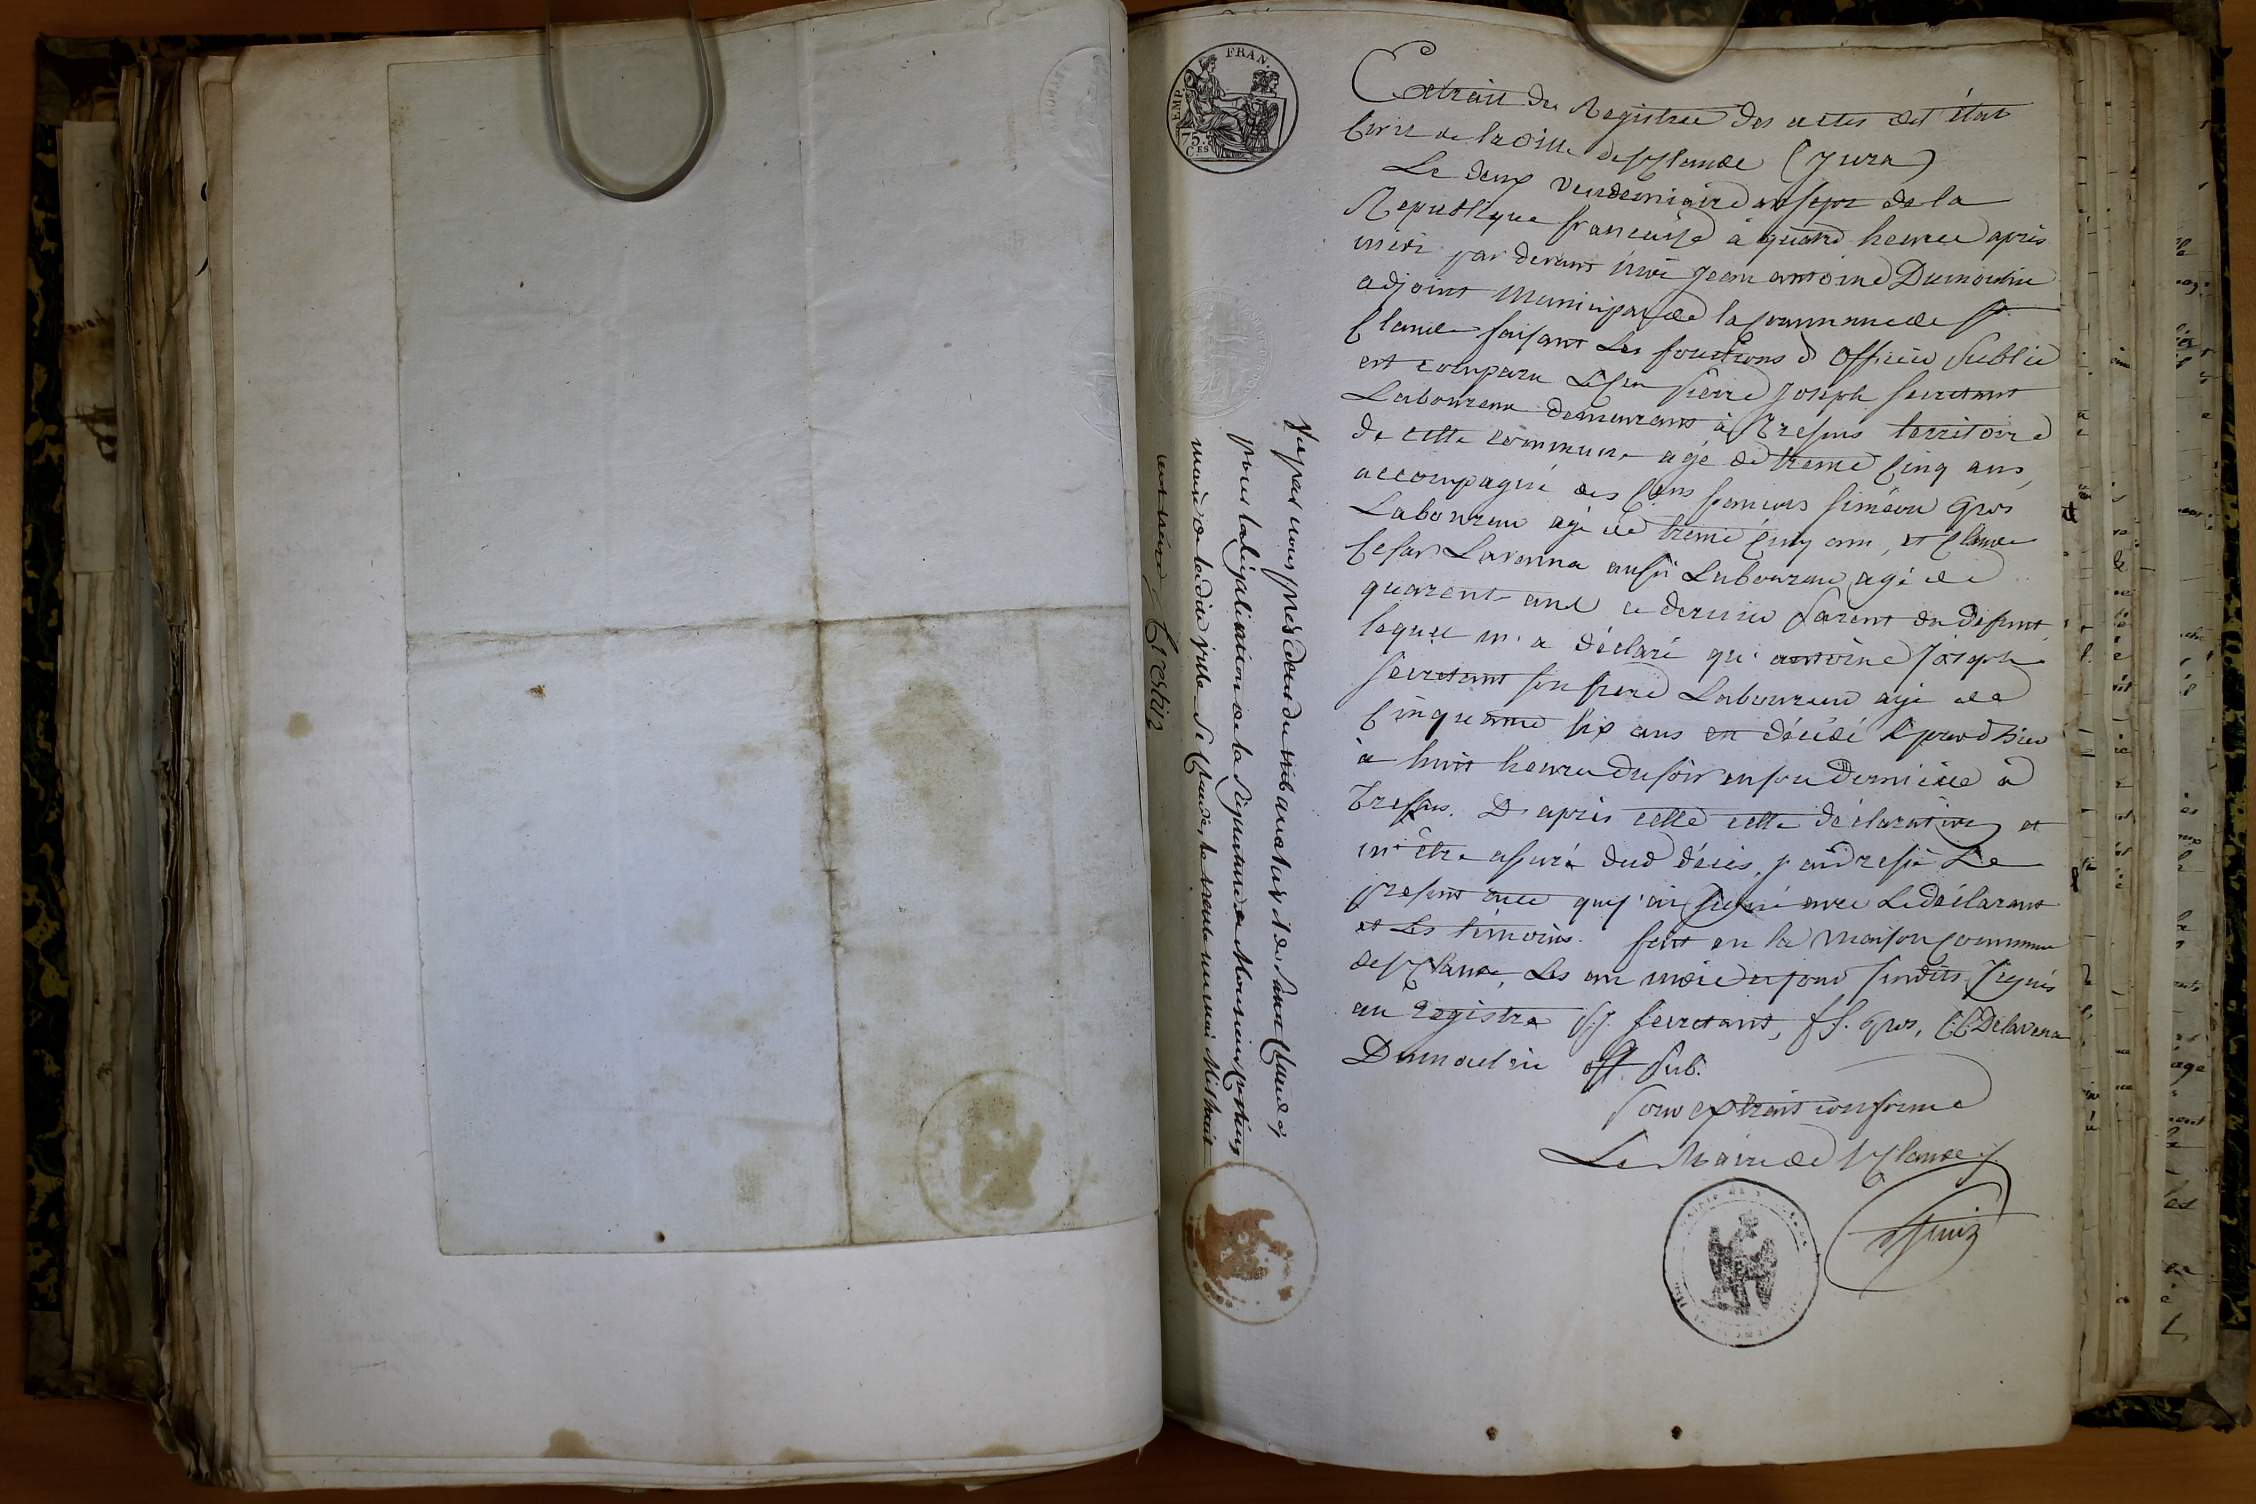 FRAN.
TEMP.
75
C.ES
Extrait du Registre des actes de l'état
Civil de la Ville de St Claude (Jura)
Le deux vendemiaire an sept de la
Republique francaise à quatre heures après
midi par devant moi Jean antoine Dumoulin
adjoint municipal de la Commune de St
Claude faisant les fonctions d'officier Public
est comparu le Cen Pierre Joseph Secretant
Laboureur demeurant à Tressus territoire
de cette commune agé de trente Cinq ans,
accompagné des Cens francois Siméon Gros
Laboureur agé de trente Cinq ans, et Claude
Cesar Lavenna aussi Laboureur agé de
quarente ans ce dernier Parent du defunt,
lequel m'a déclaré qu'antoine Joseph
Secretant son frere Laboureur agé de
Cinquante six ans est décédé le jour d'hier
à huit heures du soir en son domicile à
Tressus. D'après cette cette déclaration et
m'être assuré dud décès, j'ai dressé Le
present acte que j'ai signé avec Le déclarant
et Les témoins. fait en la maison Commune
de St Claude, Les an mois et jour susdits, Signés
au registre P.J. Secretant, f.S. Gros, C.C. Delavena
Dumoulin off. Pub.
Pour extrait conforme
Le Maire de St Claude
Vu par nous président du tribunal civil de Saint Claude
pour la légalisation de la Signature de Monsieur Crestin
maire de ladite ville. St Claude, le trente un mai Mil huit
cent treize. Crestin